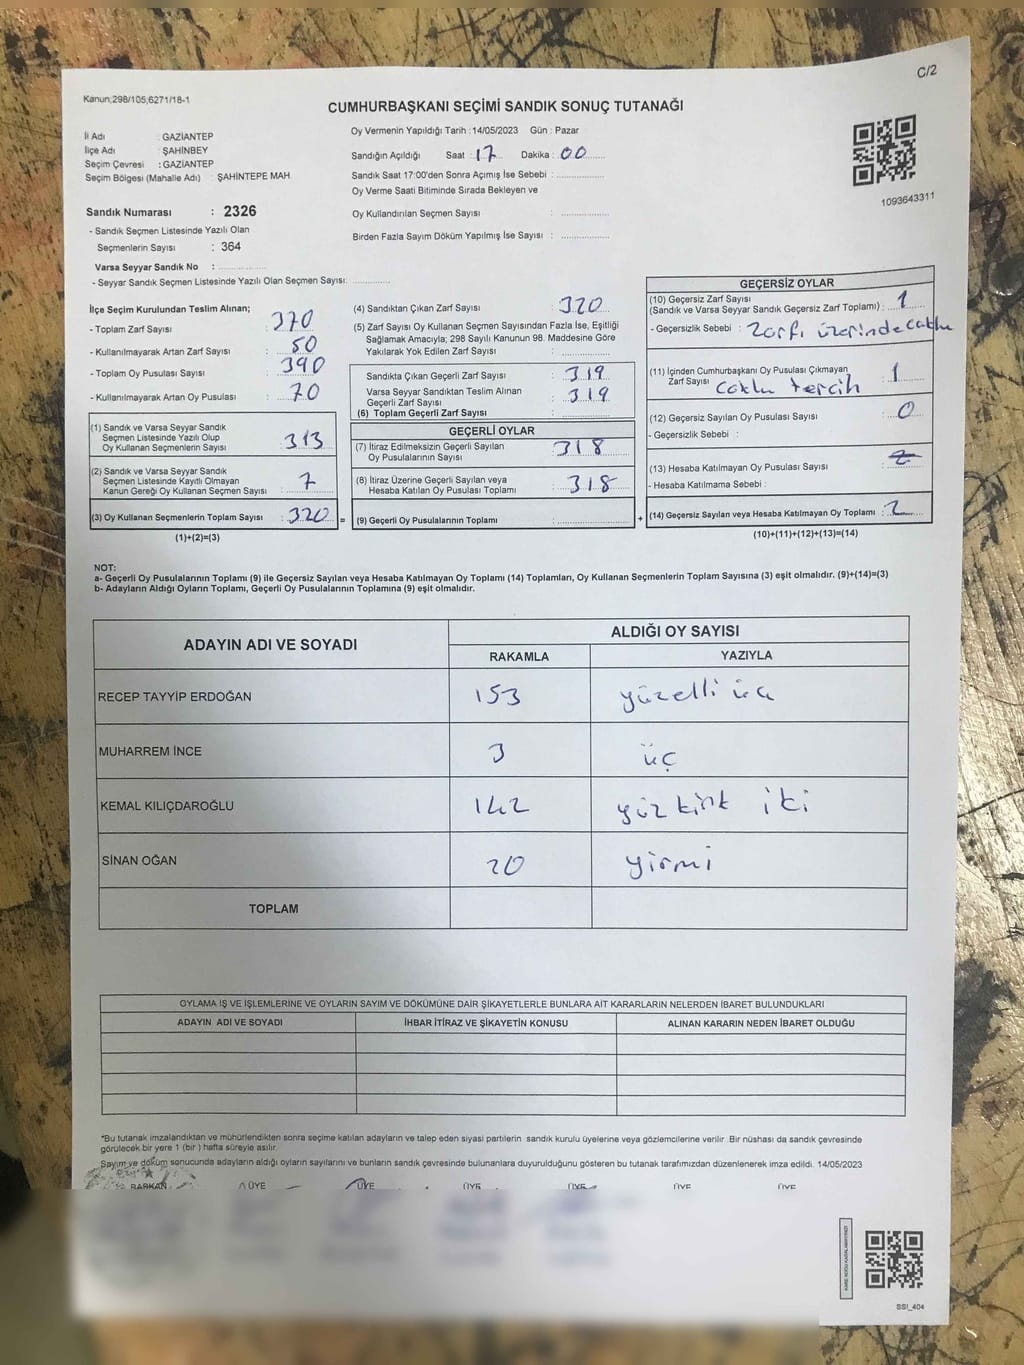 C/2
Kanun;298/105,6271/18-1
CUMHURBAŞKANI SEÇİMİ SANDIK SONUÇ TUTANAĞI
İl Adı : GAZİANTEP
İlçe Adı : ŞAHİNBEY
Seçim Çevresi : GAZİANTEP
Seçim Bölgesi (Mahalle Adı) : ŞAHİNTEPE MAH.
Sandık Numarası : 2326
- Sandık Seçmen Listesinde Yazılı Olan
Seçmenlerin Sayısı : 364
Varsa Seyyar Sandık No :
- Seyyar Sandık Seçmen Listesinde Yazılı Olan Seçmen Sayısı:
Oy Vermenin Yapıldığı Tarih :14/05/2023 Gün : Pazar
Sandığın Açıldığı Saat : 17 Dakika : 00
Sandık Saat 17:00'den Sonra Açımış İse Sebebi :
Oy Verme Saati Bitiminde Sırada Bekleyen ve
Oy Kullandırılan Seçmen Sayısı :
Birden Fazla Sayım Döküm Yapılmış İse Sayısı :
1093643311
İlçe Seçim Kurulundan Teslim Alınan;
- Toplam Zarf Sayısı : 370
- Kullanılmayarak Artan Zarf Sayısı : 50
- Toplam Oy Pusulası Sayısı : 390
- Kullanılmayarak Artan Oy Pusulası : 70
(1) Sandık ve Varsa Seyyar Sandık
Seçmen Listesinde Yazılı Olup
Oy Kullanan Seçmenlerin Sayısı : 313
(2) Sandık ve Varsa Seyyar Sandık
Seçmen Listesinde Kayıtlı Olmayan
Kanun Gereği Oy Kullanan Seçmen Sayısı : 7
(3) Oy Kullanan Seçmenlerin Toplam Sayısı : 320
(1)+(2)=(3)
(4) Sandıktan Çıkan Zarf Sayısı : 320
(5) Zarf Sayısı Oy Kullanan Seçmen Sayısından Fazla İse, Eşitliği
Sağlamak Amacıyla; 298 Sayılı Kanunun 98. Maddesine Göre
Yakılarak Yok Edilen Zarf Sayısı :
Sandıkta Çıkan Geçerli Zarf Sayısı : 319
Varsa Seyyar Sandıktan Teslim Alınan
Geçerli Zarf Sayısı : 319
(6) Toplam Geçerli Zarf Sayısı :
GEÇERLİ OYLAR
(7) İtiraz Edilmeksizin Geçerli Sayılan
Oy Pusulalarının Sayısı : 318
(8) İtiraz Üzerine Geçerli Sayılan veya
Hesaba Katılan Oy Pusulası Toplamı : 318
= (9) Geçerli Oy Pusulalarının Toplamı :
GEÇERSİZ OYLAR
(10) Geçersiz Zarf Sayısı
(Sandık ve Varsa Seyyar Sandık Geçersiz Zarf Toplamı) : 1
- Geçersizlik Sebebi : Zarfı üzerinde
(11) İçinden Cumhurbaşkanı Oy Pusulası Çıkmayan
Zarf Sayısı çoklu tercih : 1
(12) Geçersiz Sayılan Oy Pusulası Sayısı : 0
- Geçersizlik Sebebi :
(13) Hesaba Katılmayan Oy Pusulası Sayısı : 2
- Hesaba Katılmama Sebebi :
+ (14) Geçersiz Sayılan veya Hesaba Katılmayan Oy Toplamı : 2
(10)+(11)+(12)+(13)=(14)
NOT:
a- Geçerli Oy Pusulalarının Toplamı (9) ile Geçersiz Sayılan veya Hesaba Katılmayan Oy Toplamı (14) Toplamları, Oy Kullanan Seçmenlerin Toplam Sayısına (3) eşit olmalıdır. (9)+(14)=(3)
b- Adayların Aldığı Oyların Toplamı, Geçerli Oy Pusulalarının Toplamına (9) eşit olmalıdır.
ADAYIN ADI VE SOYADI ALDIĞI OY SAYISI
RAKAMLA YAZIYLA
RECEP TAYYİP ERDOĞAN 153 yüzelli üç
MUHARREM İNCE 3 üç
KEMAL KILIÇDAROĞLU 142 yüz kırk iki
SİNAN OĞAN 20 yirmi
TOPLAM
OYLAMA İŞ VE İŞLEMLERİNE VE OYLARIN SAYIM VE DÖKÜMÜNE DAİR ŞİKAYETLERLE BUNLARA AİT KARARLARIN NELERDEN İBARET BULUNDUKLARI
ADAYIN ADI VE SOYADI İHBAR İTİRAZ VE ŞİKAYETİN KONUSU ALINAN KARARIN NEDEN İBARET OLDUĞU
*Bu tutanak imzalandıktan ve mühürlendikten sonra seçime katılan adayların ve talep eden siyasi partilerin sandık kurulu üyelerine veya gözlemcilerine verilir .Bir nüshası da sandık çevresinde
görülecek bir yere 1 (bir ) hafta süreyle asılır.
Sayım ve döküm sonucunda adayların aldığı oyların sayılarını ve bunların sandık çevresinde bulunanlara duyurulduğunu gösteren bu tutanak tarafımızdan düzenlenerek imza edildi. 14/05/2023
BAŞKAN ÜYE ÜYE ÜYE ÜYE ÜYE ÜYE
SSI_404